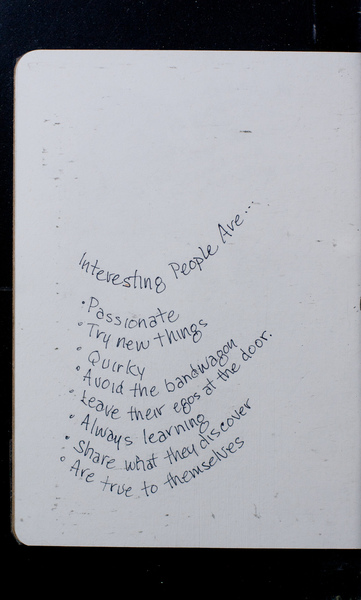 Interesting People Are...
• Passionate
• Try new things
• Quirky
• Avoid the bandwagon
• Leave their egos at the door.
• Always learning
• Share what they discover
• Are true to themselves